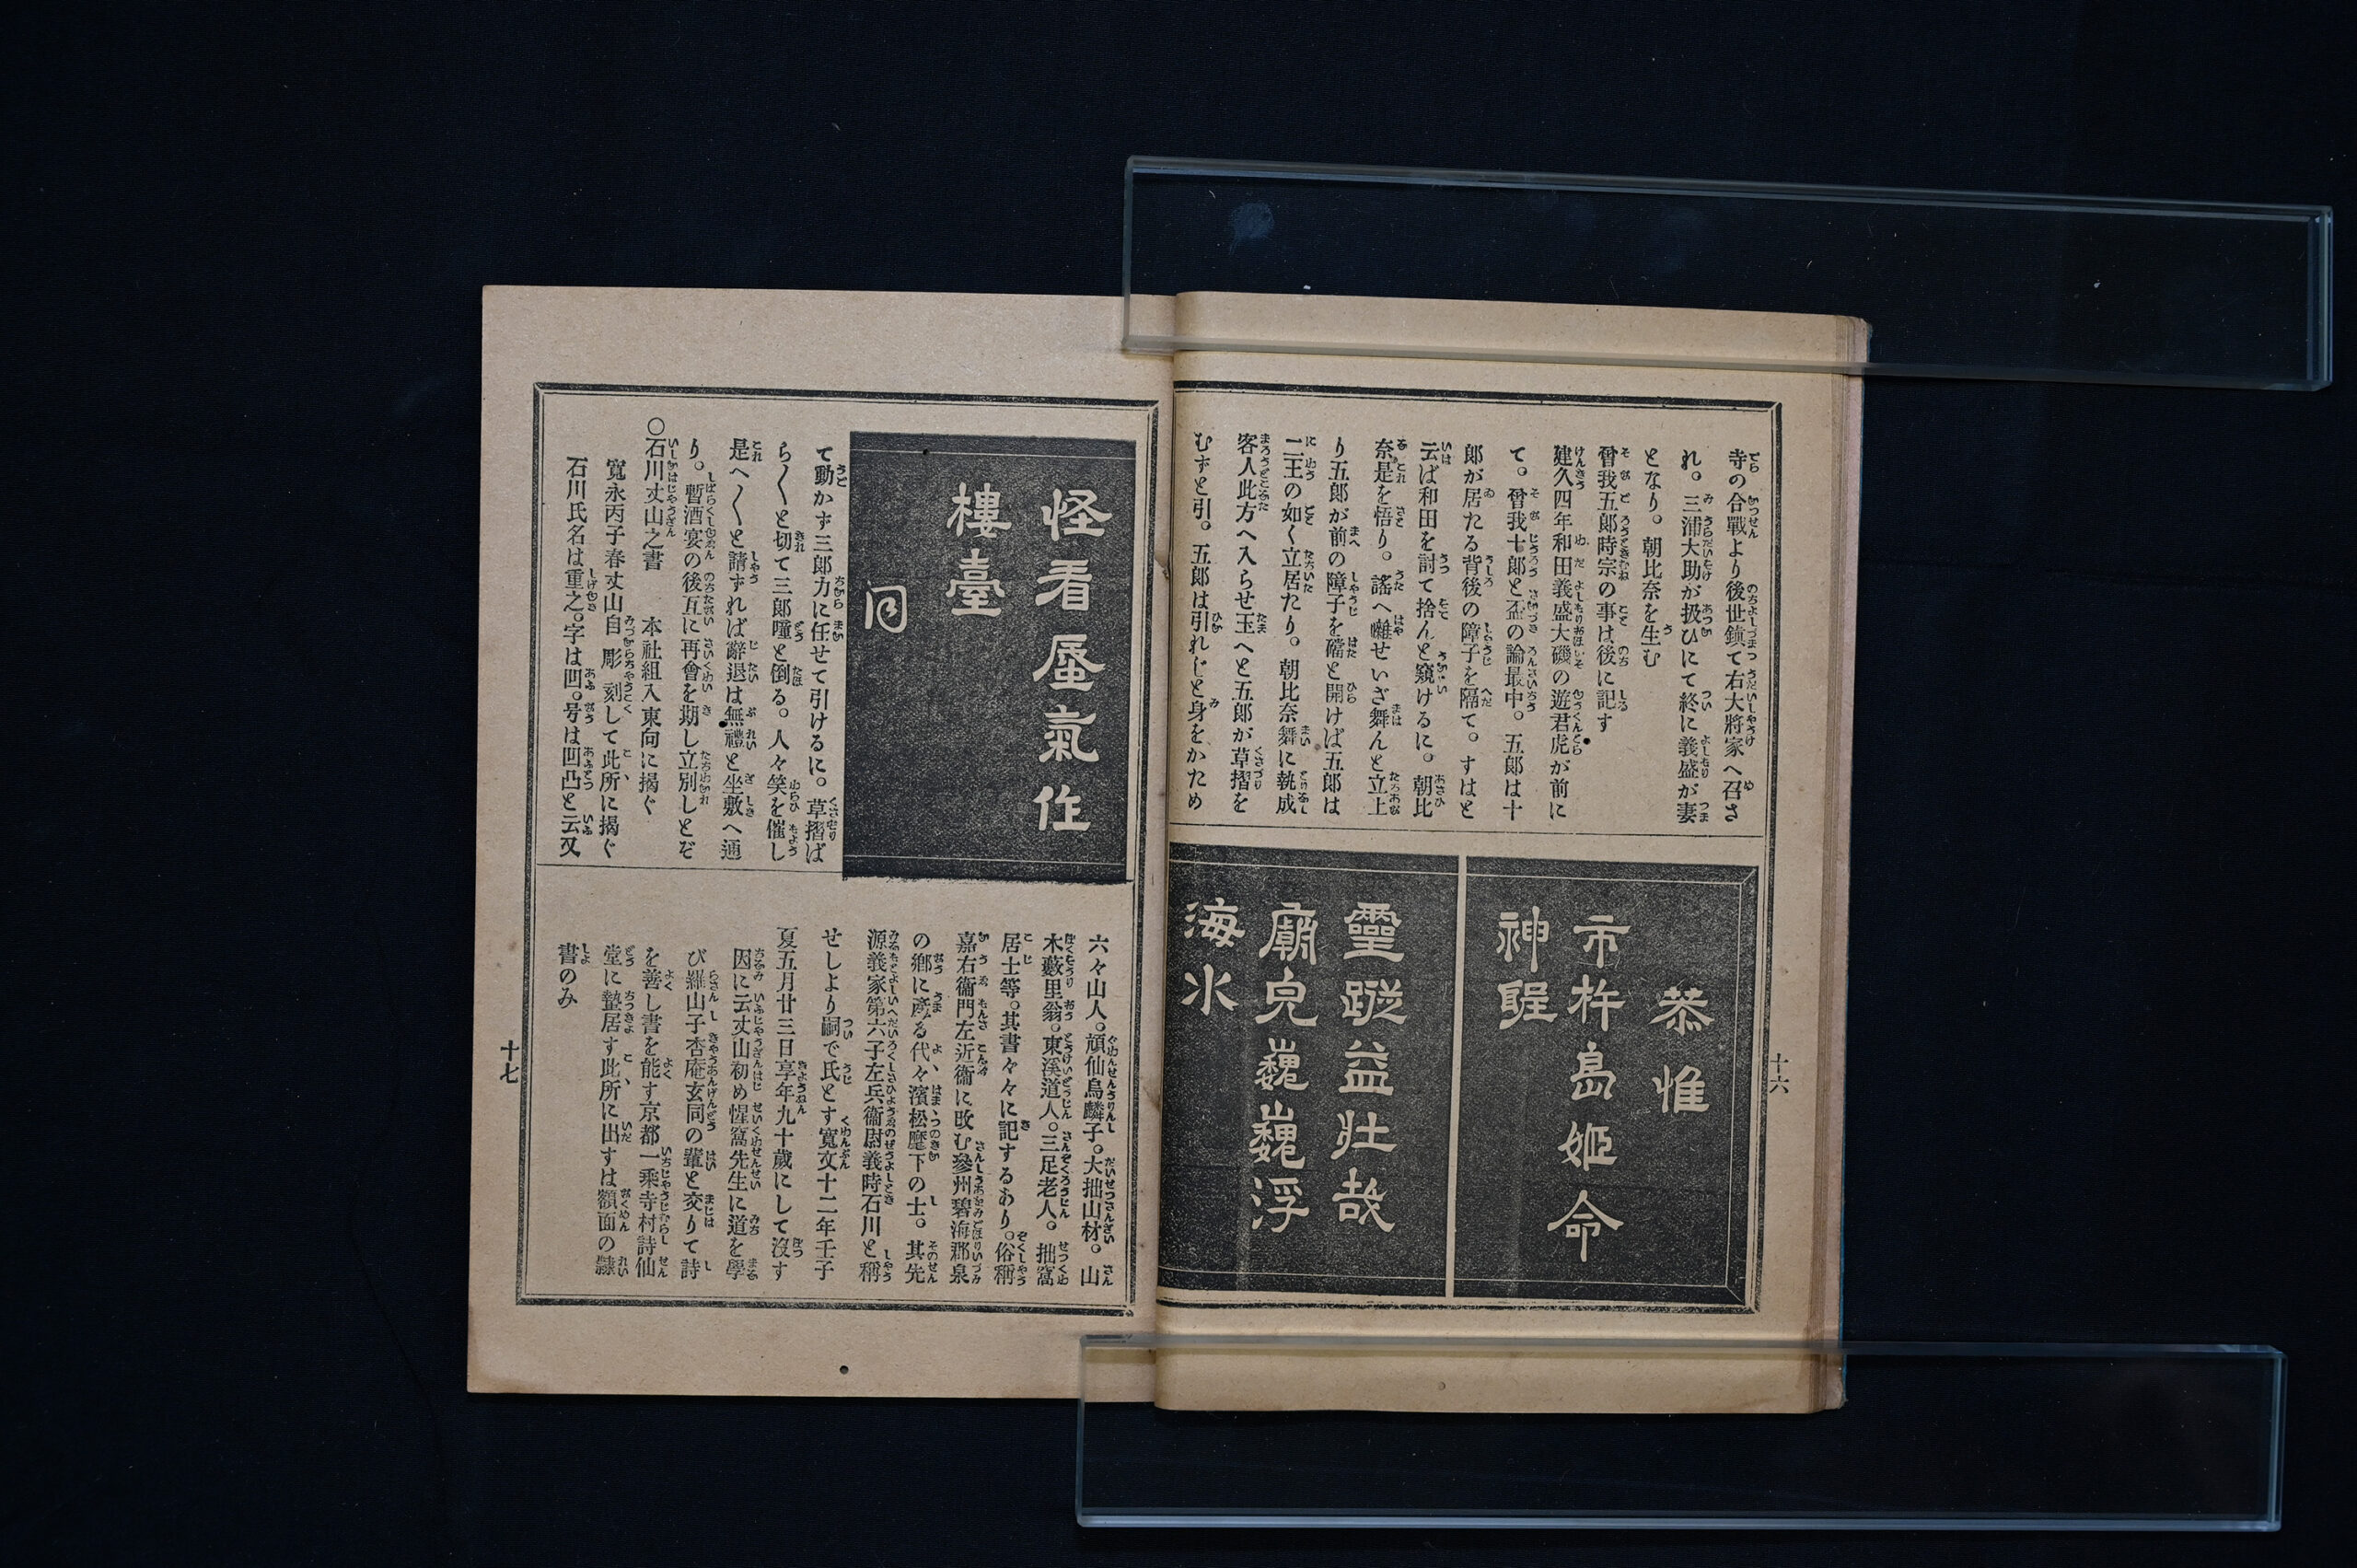 寺の合戰より後世鎭て右大將家へ召さ
れ。三浦大助が扱ひにて終に義盛が妻
となり。朝比奈を生む
曾我五郎時宗の事は後に記す
建久四年和田義盛大磯の遊君虎が前に
て。曾我十郎と盃の論最中。五郎は十
郎が居たる背後の障子を隔て。すはと
云ば和田を討て捨んと窺けるに。朝比
奈是を悟り。謠へ囃せいざ舞んと立上
り五郎が前の障子を礑と開けば五郎は
二王の如く立居たり。朝比奈舞に執成
客人此方へ入らせ玉へと五郎が草摺を
むずと引。五郎は引れじと身をかため
恭惟
市杵島姬命
神聖
靈蹤益壯哉
廟皃巍巍浮
海水
十六
怪看蜃氣作
樓臺
て動かず三郎力に任せて引けるに。草摺ば
ら〱と切て三郎噇と倒る。人々笑を催し
是へ〱と請ずれば辭退は無禮と坐敷へ通
り。暫酒宴の後互に再會を期し立別しとぞ
○石川丈山之書　本社組入東向に揭ぐ
寬永丙子春丈山自彫刻して此所に揭ぐ
石川氏名は重之。字は凹。号は凹凸と云又
六々山人。頑仙烏麟子。大拙山材。山
木藪里翁。東溪道人。三足老人。拙窩
居士等。其書々々に記するあり。俗稱
嘉右衞門左近衞に改む參州碧海郡泉
の鄕に產る代々濱松麾下の士。其先
源義家第六子左兵衞尉義時石川と稱
せしより嗣で氏とす寬文十二年壬子
夏五月廿三日享年九十歲にして沒す
因に云丈山初め惺窩先生に道を學
び羅山子杏庵玄同の輩と交りて詩
を善し書を能す京都一乘寺村詩仙
堂に蟄居す此所に出すは額面の隸
書のみ
十七